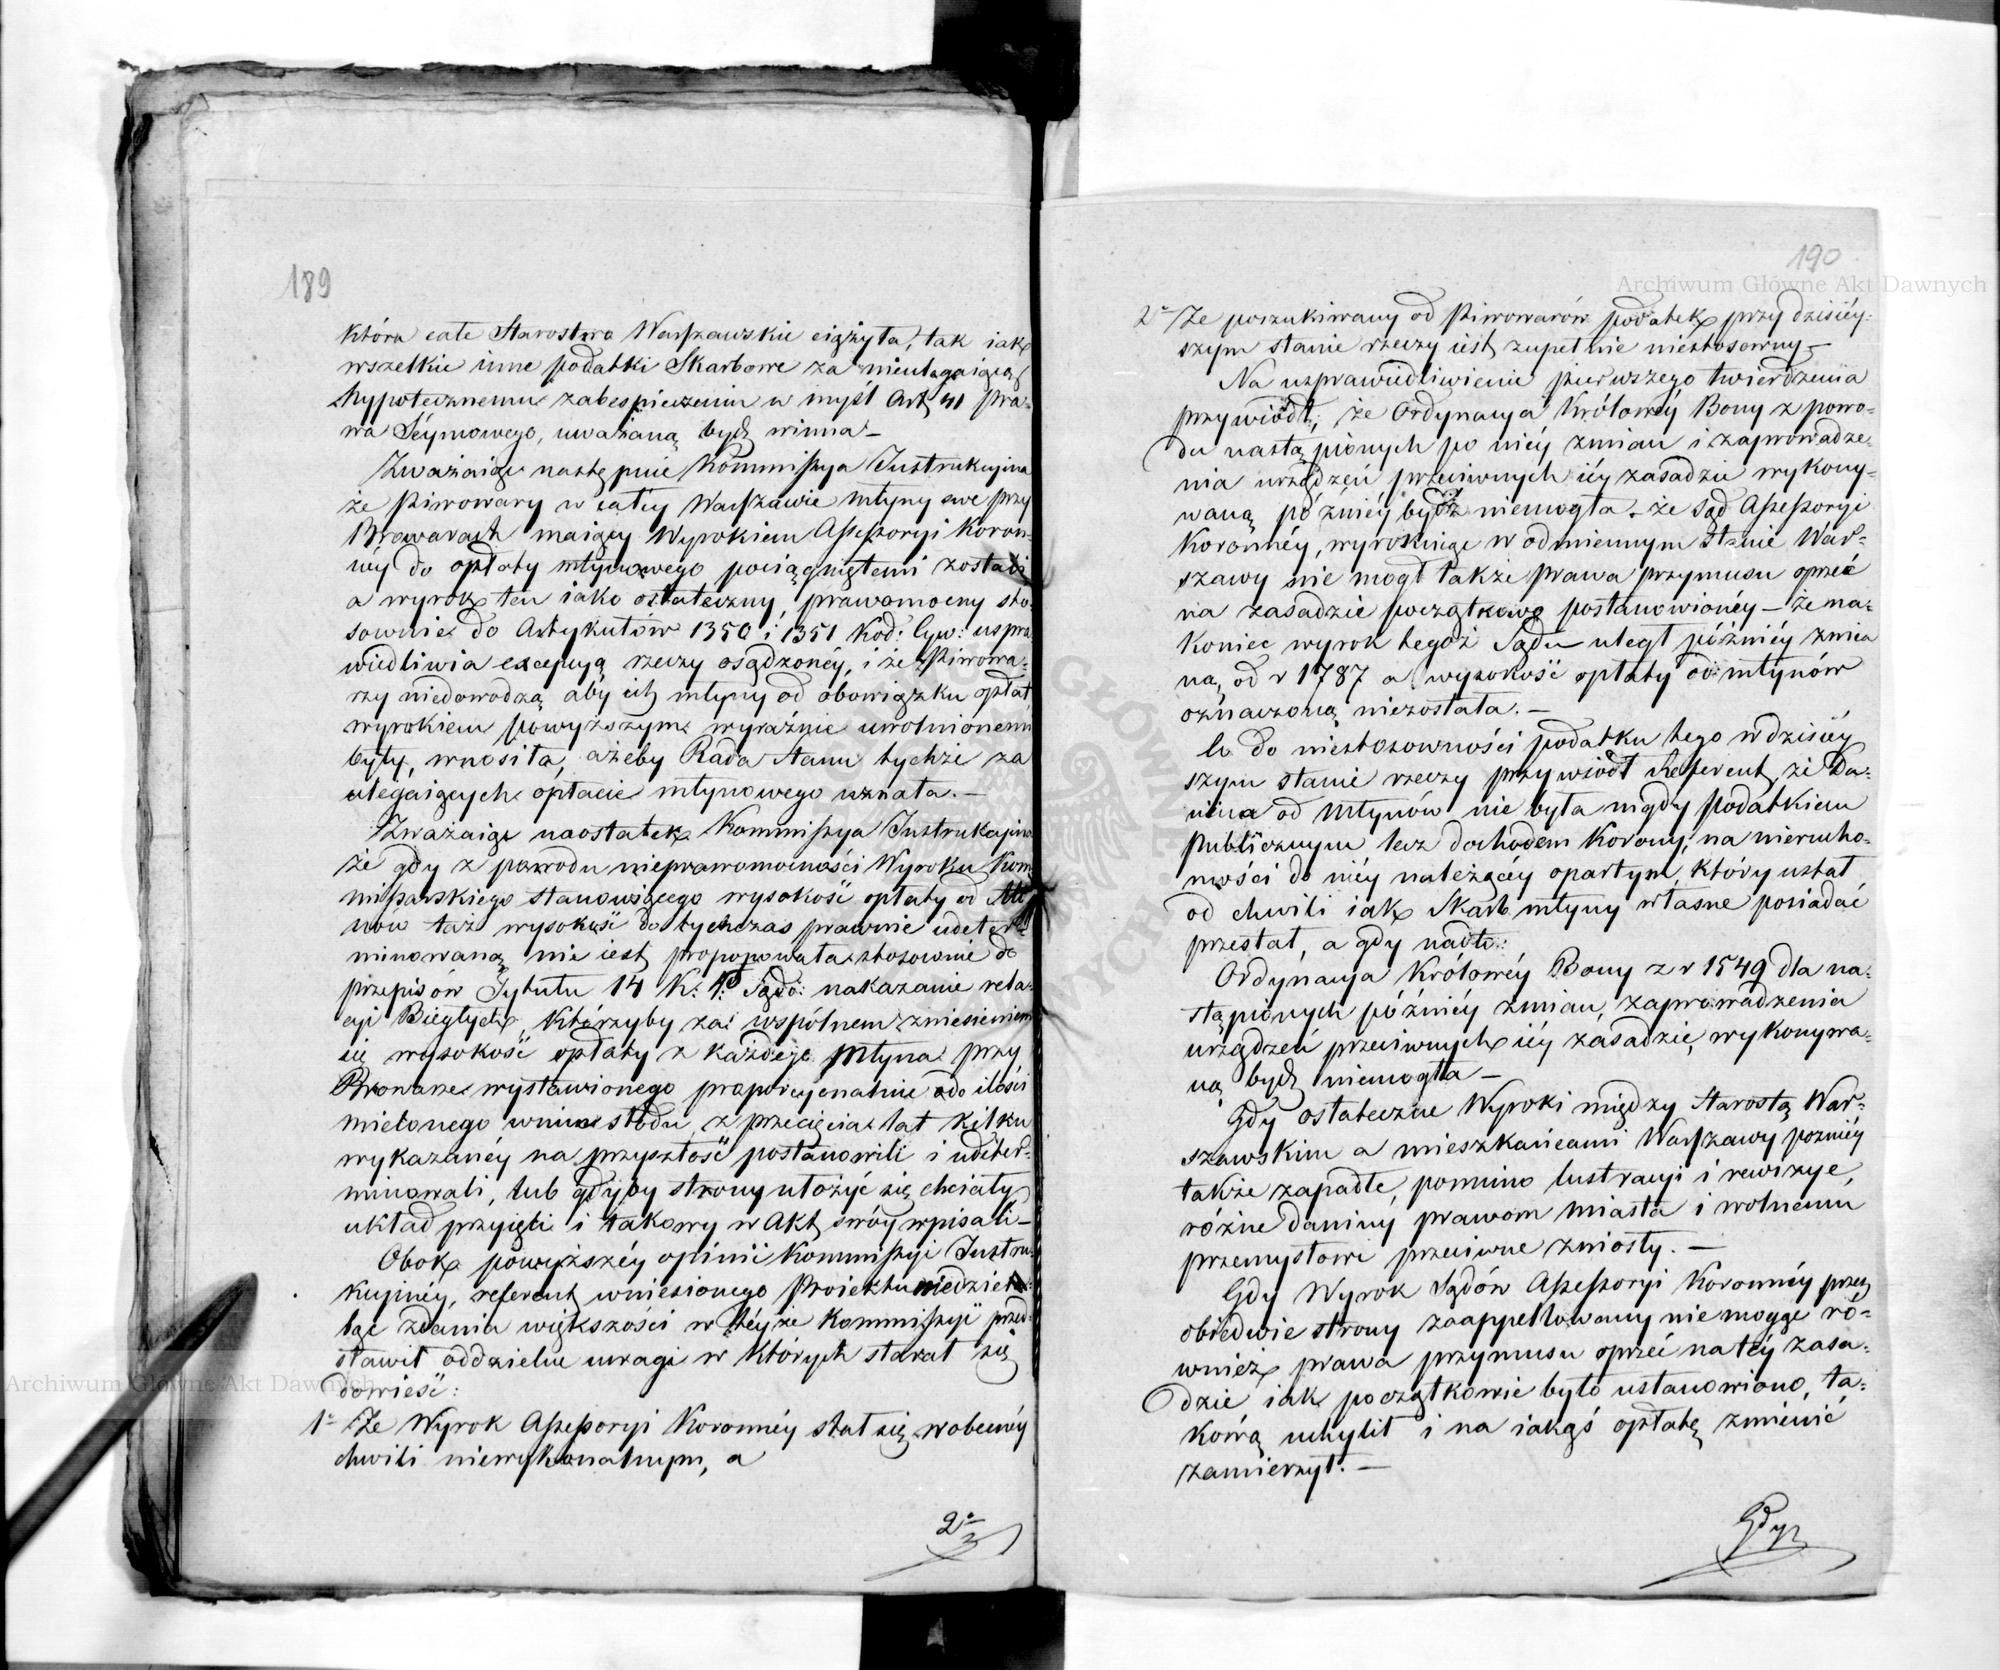 189
która całe Starostwo Warszawskie ciążyła, tak iak
wszelkie inne podatki Skarbowe za nieulegaiącą
hypotecznemu zabespieczeniu w myśl Art 41 Pra-
wa Séymowego, uważaną bydź winna –
Zważaiąc następnie Kommissya Instrukcyina
że Piwowary w całéy Warszawie młyny swe przy
Browarach maiący Wyrokiem Assessoryi Koron-
néy do opłaty młynowego pociągniętemi zostali
a wyrok ten iako ostateczny, prawomocny sto-
sownie do Artykułów 1350 i 1351 Kod: Cyw: uspra-
wiedliwia excepcyą rzeczy osądzonéy, i że Piwowa-
rzy niedowodzą, aby ich młyny od obowiązku opłat
wyrokiem powyższym wyraźnie uwolnionemi
były, wnosiła, ażeby Rada Stanu tychże za
ulegaiących opłacie młynowego uznała. –
Zważaiąc naostatek Kommissya Instrukcyina
że gdy z powodu nieprawomocności Wyroku Kom-
missarskiego stanowiącego wysokość opłaty od Mły-
nów taż wysokość dotychczas prawnie udeter-
minowaną nie iest, proponowała stosownie do
przepisów Tytułu 14 K: P: Sądo: nakazanie rela-
cyi Biegłych, którzyby za wspólnem zniesieniem
się wysokość opłaty z każdego Młyna przy
Browarze wystawionego proporcyonalnie do ilości
mielonego w nim słodu, z przecięcia lat kilku
wykazanéy na przyszłość postanowili i udeter-
minowali, lub gdyby strony ułożyć się chciały
układ przyięli i takowy w Akt swóy wpisali –
Obok powyższéy opinii Kommissyi Instru-
kcyinéy, referent wniesionego Proiektu niedziele-
ląc zdania większości w téyże Kommissyi przed-
stawił oddzielne uwagi w których starał się
dowieść:
1° Że Wyrok Assessoryi Koronnéy stał się w obecnéy
chwili niewykonalnym, a
2°
190
2° Że poszukiwany od Piwowarów podatek przy dzisiéy-
szym stanie rzeczy iest zupełnie niestosowny –
Na usprawiedliwienie pierwszego twierdzenia
przywiódł, że Ordynacya Królowéy Bony z powo-
du nastąpionych po niéy zmian i zaprowadze-
nia urządzeń przeciwnych iéy zasadzie wykony-
waną późniéy bydź niemogła – że Sąd Assessoryi
Koronnéy, wyrokuiąc w odmiennym stanie War-
szawy nie mogł także prawa przymusu oprzeć
na zasadzie początkowo postanowionéy – że na-
koniec wyrok tegoż Sądu uległ późniéy zmia
na, od r 1787 a wysokość opłaty od młynów
oznaczoną niezostała. –
Co do niestosowności podatku tego w dzisiéy
szym stanie rzeczy przywiódł Referent, że Da-
nina od Młynów nie była nigdy podatkiem
Publicznym lecz dochodem Korony, na nierucho-
mości do niéy należącéy opartym, który ustał
od chwili iak Skarb młyny własne posiadać
przestał, a gdy nadto:
Ordynacya Królowéy Bony z r 1549 dla na-
stąpionych późniéy zmian, zaprowadzenia
urządzeń przeciwnych iéy zasadzie, wykonywa-
ną bydź niemogła –
Gdy ostateczne Wyroki między Starostą War-
szawskim a mieszkańcami Warszawy pozniéy
także zapadłe, pomimo lustracyi i rewizye,
różne daniny prawom miasta i wolnemu
przemysłowi przeciwne zniosły. –
Gdy Wyrok Sądów Assessoryi Koronnéy przez
obiedwie strony zaappellowany nie mogąc ró-
wnież prawa przymusu oprzeć na téy zasa-
dzie iak początkowie było ustanowiono, ta-
kową uchylił i na iakąś opłatę zmienić
zamierzył. –
Gdy
Archiwum Główne Akt Dawnych
Archiwum Główne Akt Dawnych